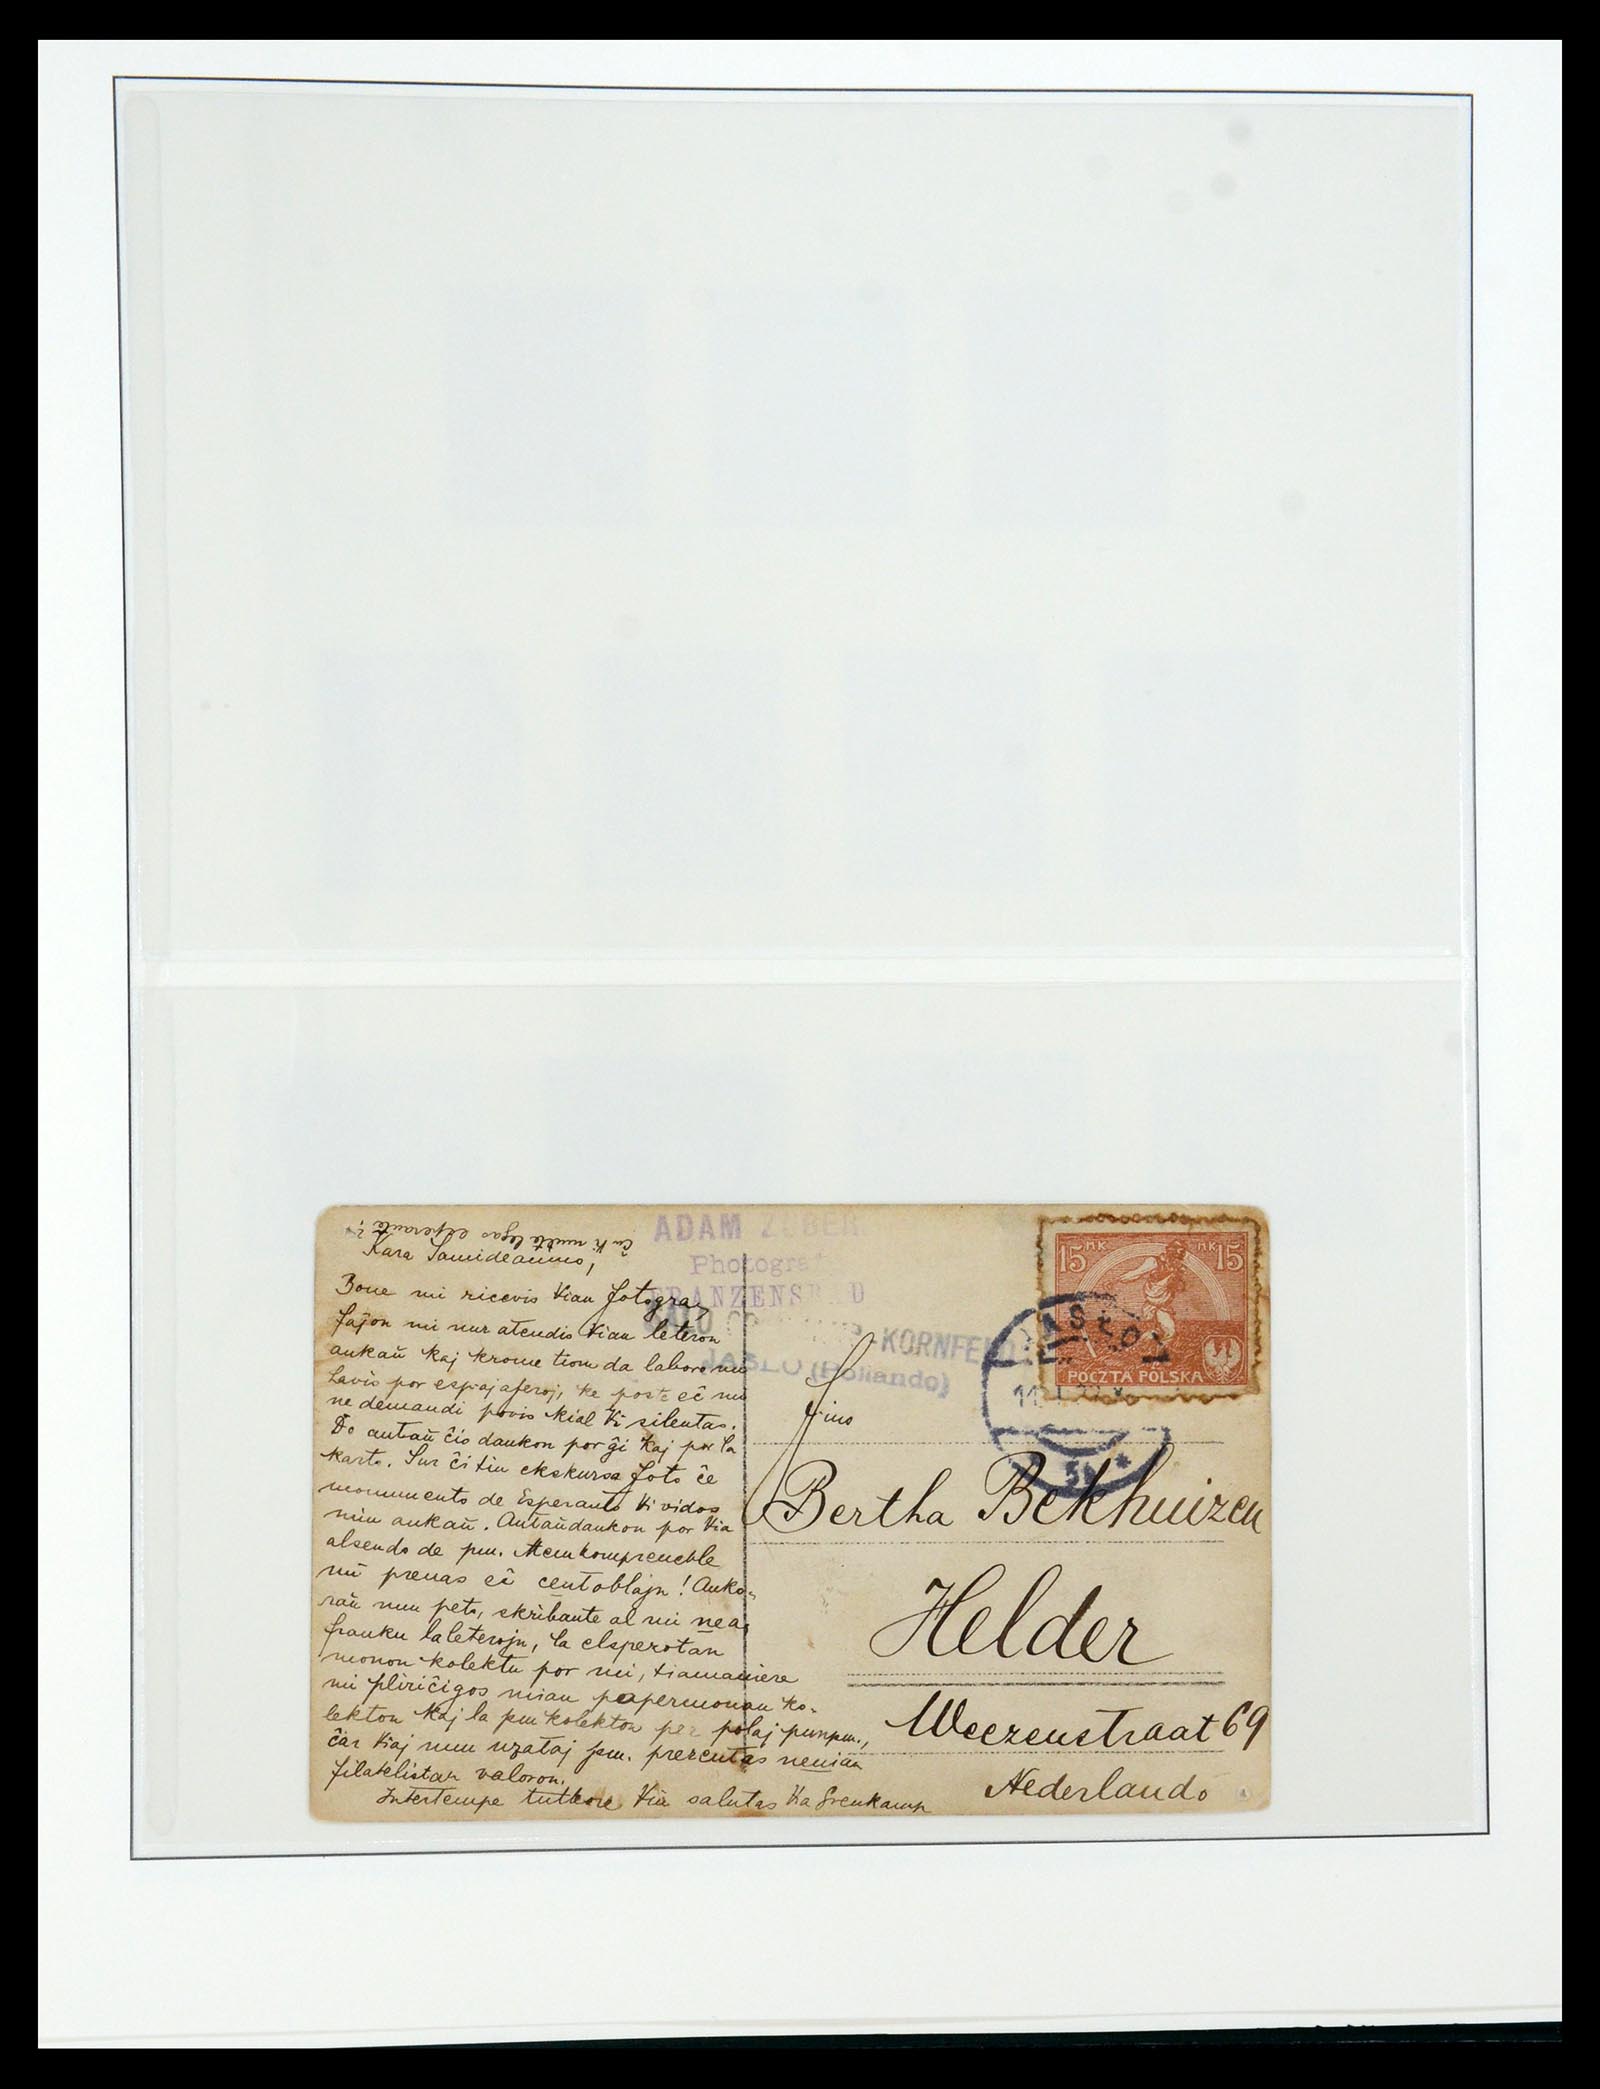 Ĉu Vi multe legas esperante?
Kara Samideanino,
Bone mi ricevis Vian fotogra-
faĵon mi nur atendis Vian leteron
ankaŭ kaj krome tiom da laboro mi
havis por esp-ajaferoj, ke poste eĉ mi
ne demandi povis kial Vi silentas.
Do antaŭ ĉio dankon por ĝi kaj por la
karto. Sur ĉi tiu ekskursa foto ĉe
monumento de Esperanto Vi vidos
min ankaŭ. Antaŭdankon por Via
alsendo de pm. Memkompreneble
mi prenas eĉ centoblajn! Anko-
raŭ nun peto, skribante al mi
franku la leterojn, la
monon kolektu por mi, tiamaniere
mi pliriĉigos mian papermonan ko-
lekton kaj la pm kolekton per polaj
ĉar Viaj nun uzataj pm. prezentas neniun
filatelistan valoron.
Intertempe tutkore Vin salutas Via
ADAM ZUBER
Photograf
FRANZENSBAD
-KORNFELD
JASŁO (Pollando)
15 MK MK 15
POCZTA POLSKA
JASŁO
Fino
Bertha Bekhuizen
Helder
Weezenstraat 69
Nederlando